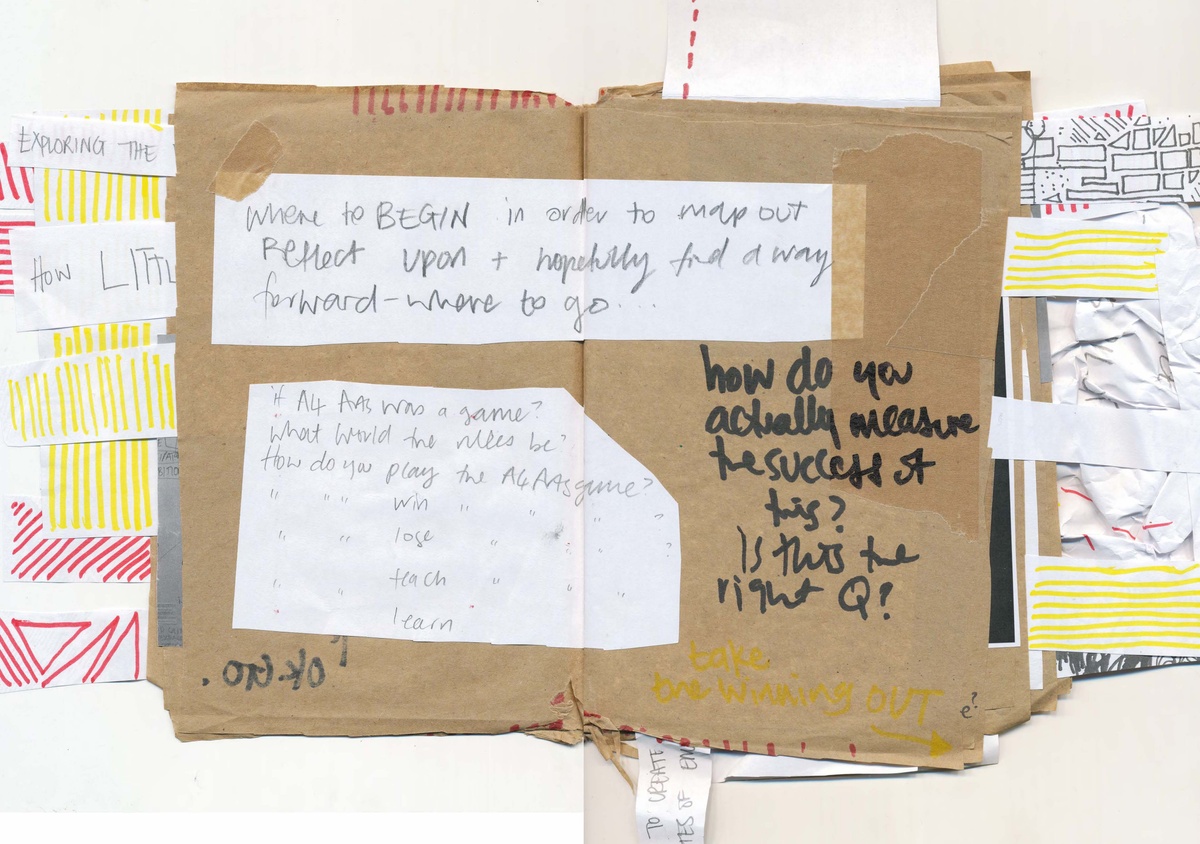 EXPLORING THE
HOW LITTL
where to BEGIN in order to map out
Reflect upon + hopefully find a way
forward - where to go....
if A4 AAs was a game?
What would the rules be?
How do you play the A4 AAs game?
" " " win " " " ?
" " lose " " " ?
" " teach " " "
" learn
how do you
actually measure
the success of
this?
Is this the
right Q?
OK. GO.
take
the winning OUT
e?
TO CREATE
TES OF EN